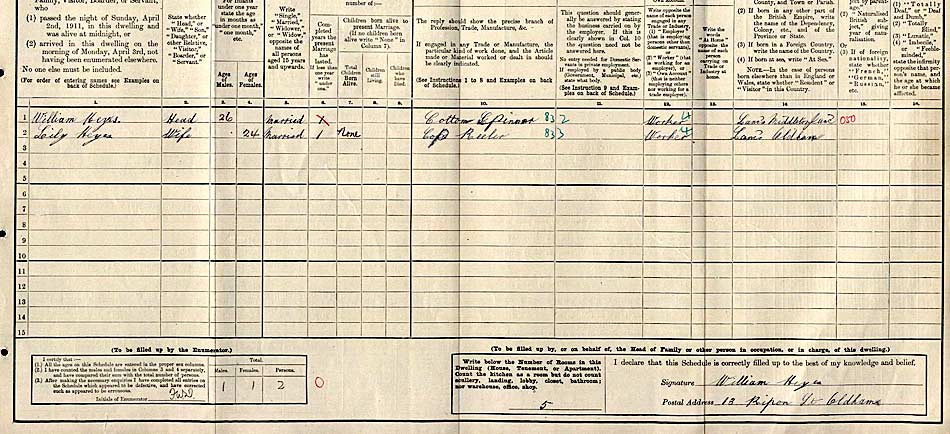 Family, Visitor, Boarder, or Servant,
who
(1) passed the night of Sunday, April
2nd, 1911, in this dwelling and
was alive at midnight, or
(2) arrived in this dwelling on the
morning of Monday, April 3rd, not
having been enumerated elsewhere.
No one else must be included.
(For order of entering names see Examples on
back of Schedule.)
State whether
"Head," or
"Wife," "Son,"
"Daughter," or
other Relative,
"Visitor,"
"Boarder," or
"Servant."
For Infants
under one year
state the age
in months as
"under one month,"
"one month,"
etc.
Ages of Males.
Ages of Females.
Write
"Single,"
"Married,"
"Widower,"
or "Widow,"
opposite the
names of
all persons
aged 15 years
and upwards.
number of:—
Completed
years the
present
Marriage
has
lasted.
If less than
one year
write
"under
one."
Children born alive to
present Marriage.
(If no children born
alive write "None" in
Column 7).
Total
Children
Born
Alive.
Children
still
Living.
Children
who
have
Died.
The reply should show the precise branch of
Profession, Trade, Manufacture, &c.
If engaged in any Trade or Manufacture, the
particular kind of work done, and the Article
made or Material worked or dealt in should
be clearly indicated.
(See Instructions 1 to 8 and Examples on
back of Schedule.)
This question should gener-
ally be answered by stating
the business carried on by
the employer. If this is
clearly shown in Col. 10
the question need not be
answered here.
No entry needed for Domestic Ser-
vants in private employment.
If employed by a public
body (Government, Municipal, etc.)
state what body.
(See Instruction 9 and Examples
on back of Schedule.)
Write opposite the
name of each person
engaged in any
Trade or Industry,
(1) "Employer"
(that is employing
persons other than
domestic servants),
or
(2) "Worker" (that
is working for an
employer), or
(3) "Own Account"
(that is neither
employing others
nor working for a
trade employer).
Write the
words
"At Home"
opposite the
name of each
person
carrying on
Trade or
Industry at
Home.
County, and Town or Parish.
(2) If born in any other part of
the British Empire, write
the name of the Dependency,
Colony, etc., and of the
Province or State.
(3) If born in a Foreign Country,
write the name of the Country.
(4) If born at sea, write "At Sea."
NOTE.—In the case of persons
born elsewhere than in England or
Wales, state whether "Resident" or
"Visitor" in this Country.
(2) "Naturalised
British sub-
ject," giving
year of natu-
ralisation.
Or
(3) If of foreign
nationality,
state whether
"French,"
"German,"
"Russian,"
etc.
(1) "Totally
Deaf," or "Deaf
and Dumb,"
(2) "Totally
Blind,"
(3) "Lunatic,"
(4) "Imbecile,"
or "Feeble-
minded,"
state the infirmity
opposite that per-
son's name, and
the age at which
he or she became
afflicted.
1. 2. 3. 4. 5. 6. 7. 8. 9. 10. 11. 12. 13. 14. 15. 16.
1 William Heyes. Head 26 Married Cotton Spinner 832 Worker 4 050
2 Lily Heyes Wife 24 Married 1 None Cop Reeler 833 Worker 4 Lancs Oldham
3
4
5
6
7
8
9
10
11
12
13
14
15
(To be filled up by the Enumerator.)
I certify that:—
(1.) All the ages on this Schedule are entered in the proper sex columns.
(2.) I have counted the males and females in Columns 3 and 4 separately,
and have compared their sum with the total number of persons.
(3.) After making the necessary enquiries I have completed all entries on
the Schedule which appeared to be defective, and have corrected
such as appeared to be erroneous.
Initials of Enumerator
Total.
Males. Females. Persons.
1 1 2 0
(To be filled up by, or on behalf of, the Head of Family or other person in occupation, or in charge, of this dwelling.)
Write below the Number of Rooms in this
Dwelling (House, Tenement, or Apartment).
Count the kitchen as a room but do not count
scullery, landing, lobby, closet, bathroom;
nor warehouse, office, shop.
5
I declare that this Schedule is correctly filled up to the best of my knowledge and belief.
Signature William Heyes
Postal Address 13 Ripon St Oldham